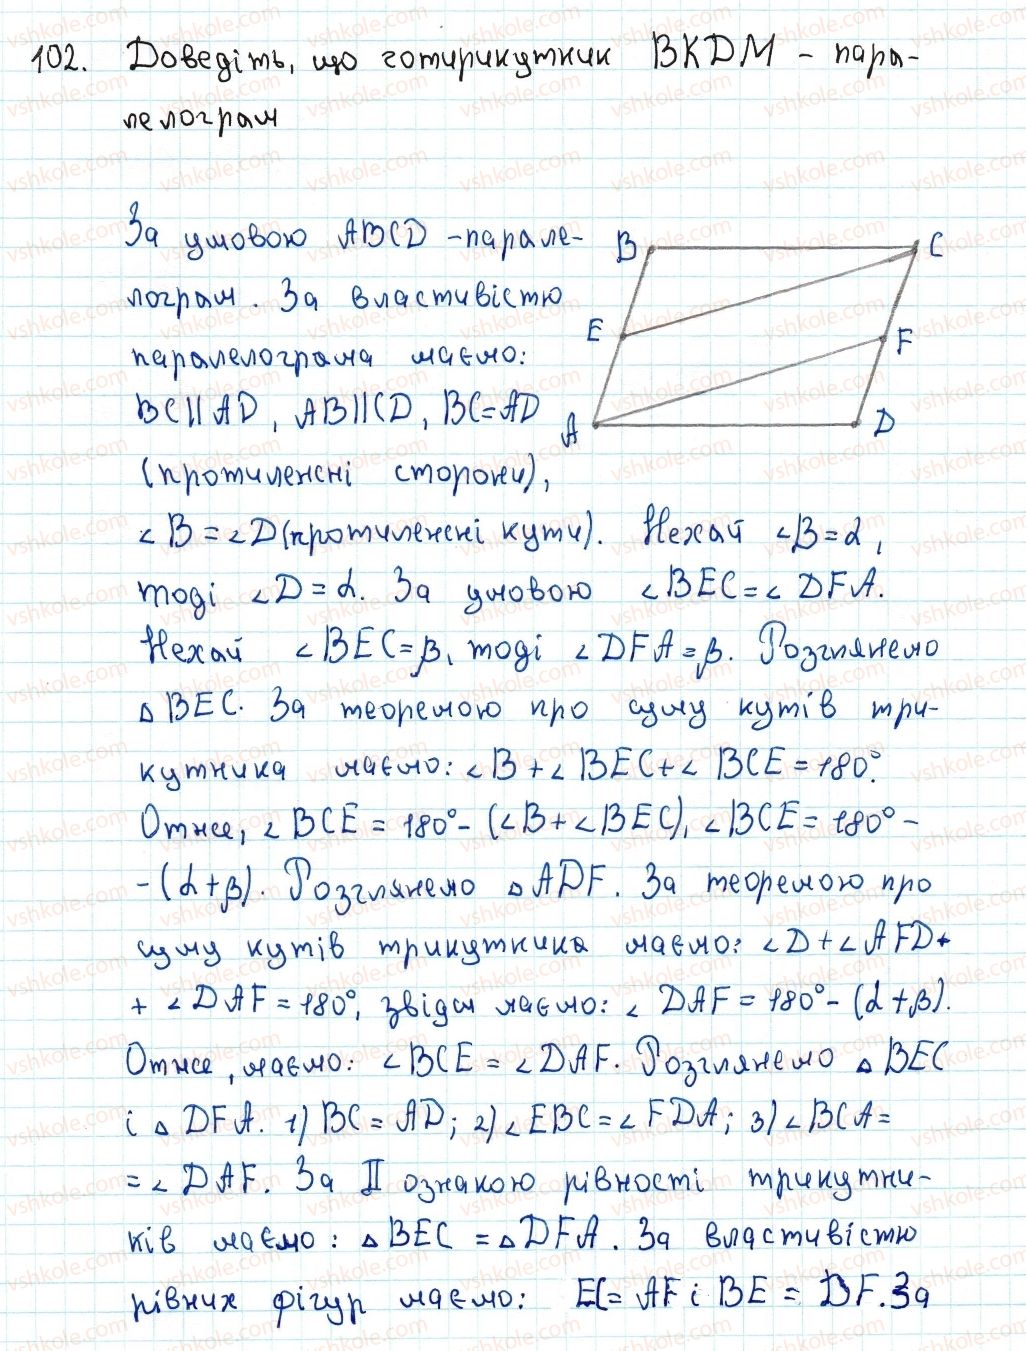 102. Доведіть, що чотирикутник BKDM - пара-
лелограм
За умовою ABCD - парале-
лограм. За властивістю
паралелограма маємо:
BC||AD, AB||CD, BC=AD
(протилежні сторони),
∠B=∠D (протилежні кути). Нехай ∠B=α,
тоді ∠D=α. За умовою ∠BEC=∠DFA.
Нехай ∠BEC=β, тоді ∠DFA=β. Розглянемо
△BEC. За теоремою про суму кутів три-
кутника маємо: ∠B+∠BEC+∠BCE=180°.
Отже, ∠BCE=180°-(∠B+∠BEC), ∠BCE=180°-
-(α+β). Розглянемо △ADF. За теоремою про
суму кутів трикутника маємо: ∠D+∠AFD+
+∠DAF=180°, звідси маємо: ∠DAF=180°-(α+β).
Отже, маємо: ∠BCE=∠DAF. Розглянемо △BEC
і △DFA. 1) BC=AD; 2) ∠EBC=∠FDA; 3) ∠BCA=
=∠DAF. За II ознакою рівності трикутни-
ків маємо: △BEC=△DFA. За властивістю
рівних фігур маємо: EC=AF і BE=DF. За
B
C
E
F
A
D
vshkole.com